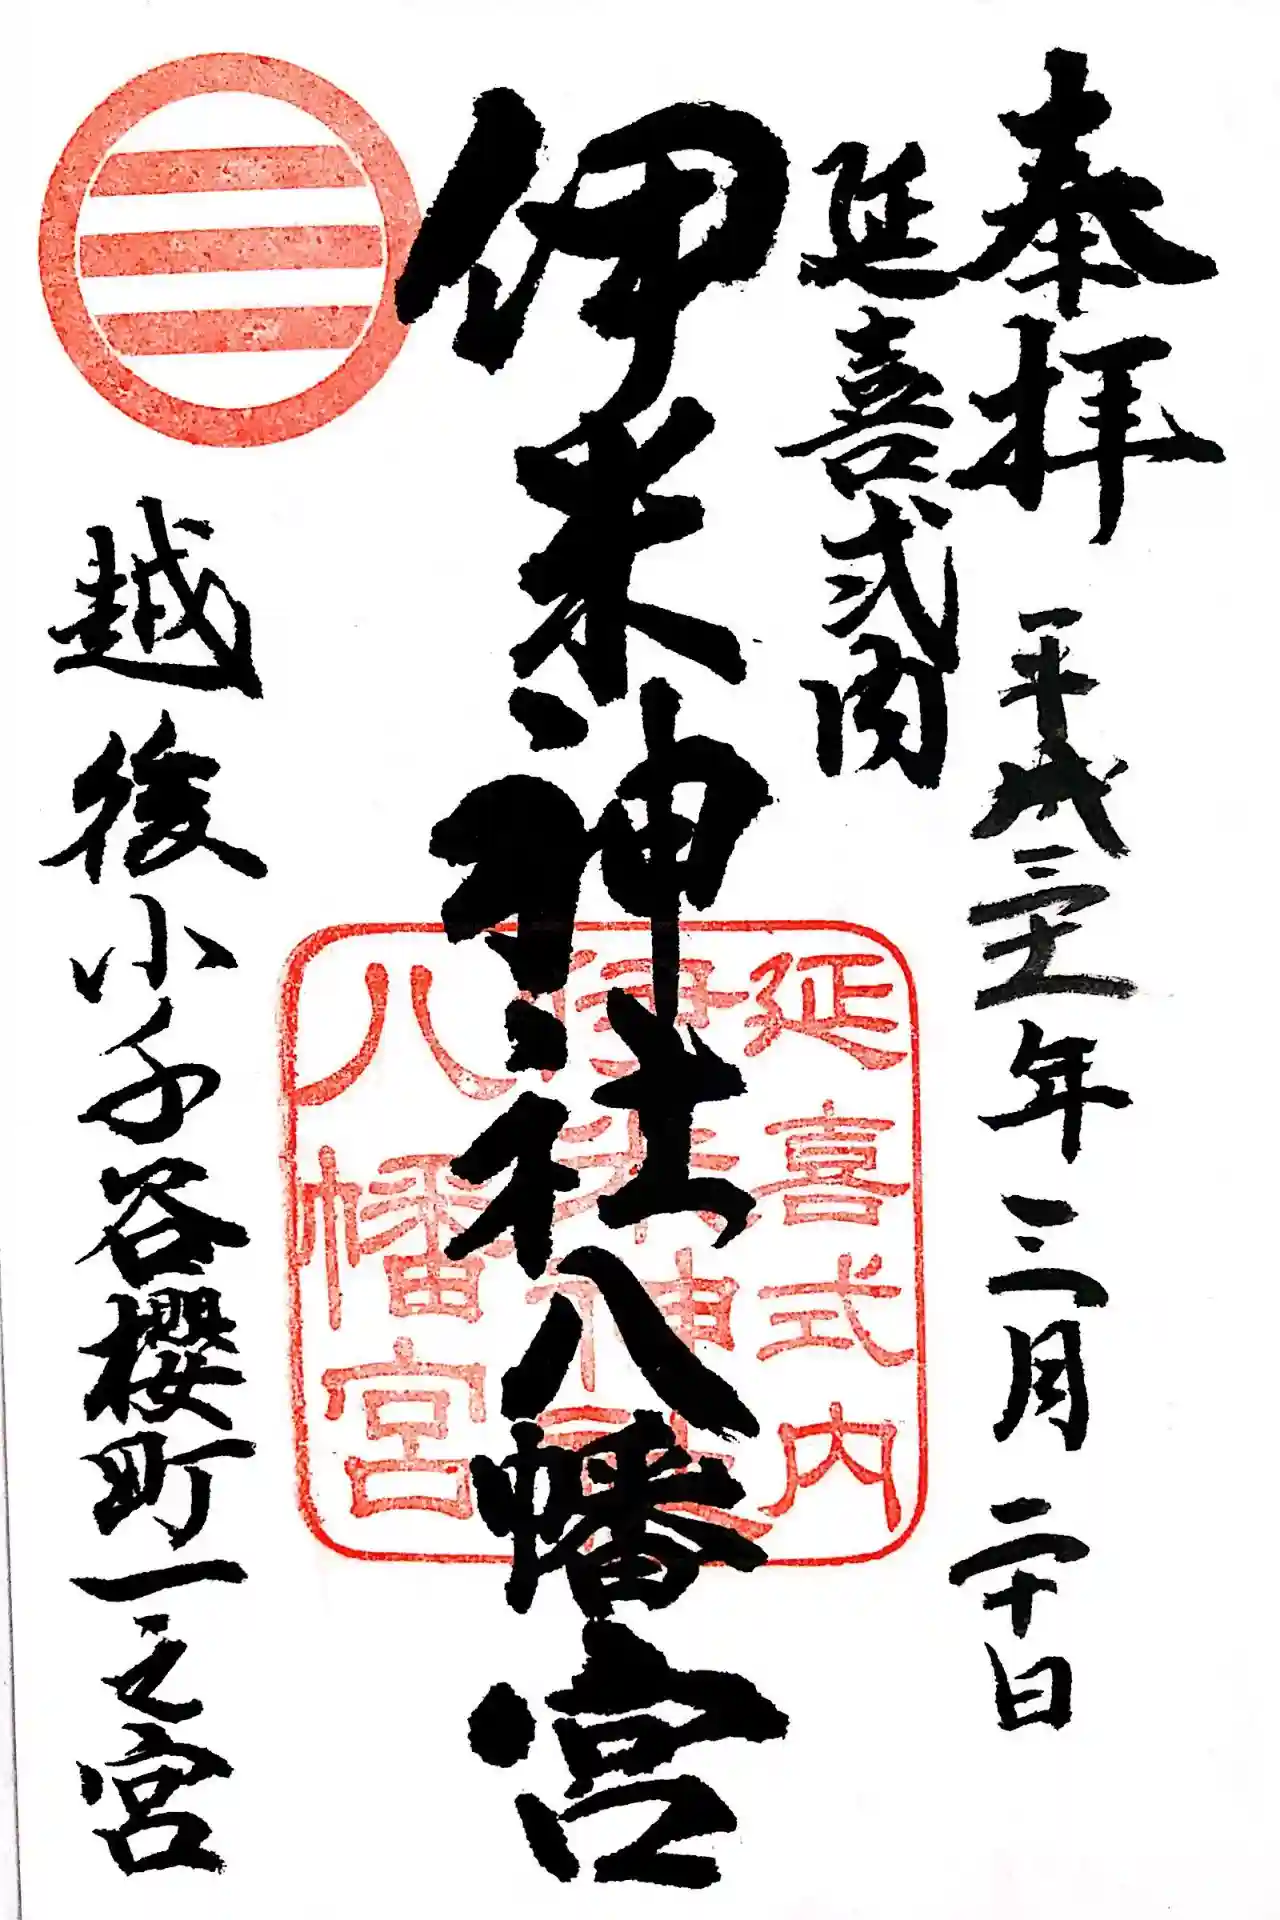 奉拝　平成三十一年三月二十日
延喜式内
伊米神社八幡宮
越後小千谷櫻町一之宮
延喜式内
伊米神社
八幡宮